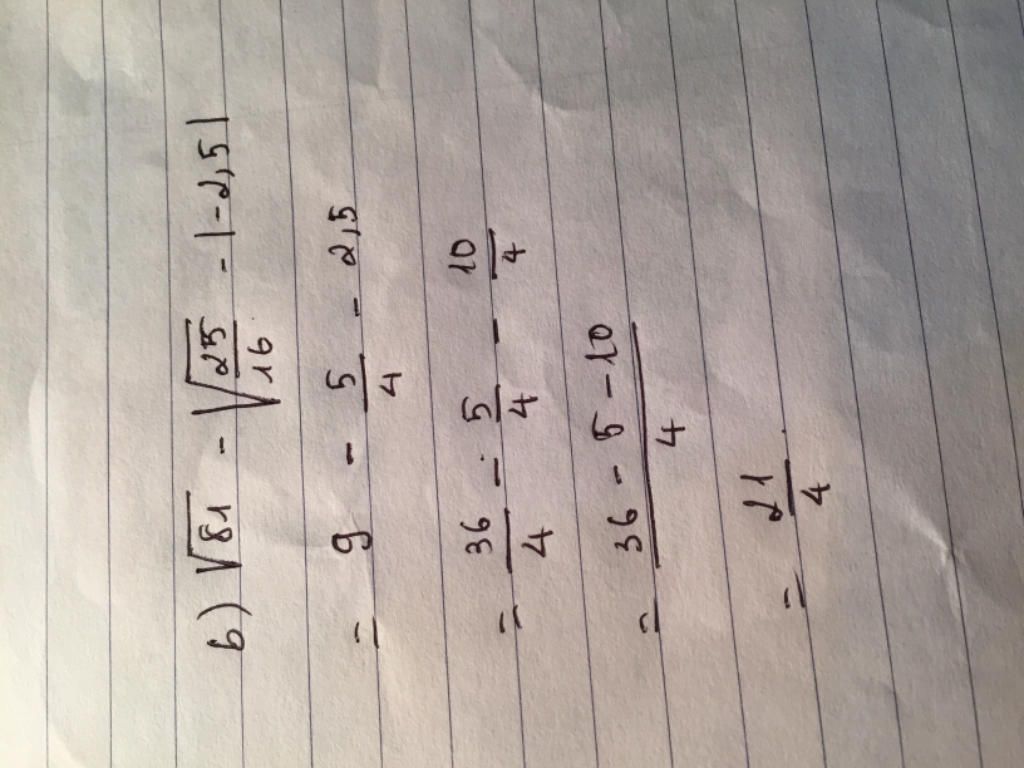 b) √81 - √(25/16) - |-2,5|
= 9 - 5/4 - 2,5
= 36/4 - 5/4 - 10/4
= (36 - 5 - 10)/4
= 21/4